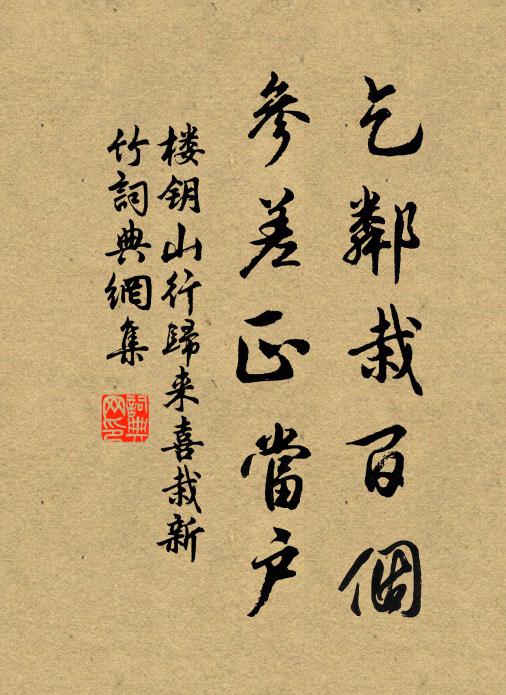 乞鄰栽百個
參差正當户
楼钥山行歸来喜栽新
竹詞典網集
詞典
网印